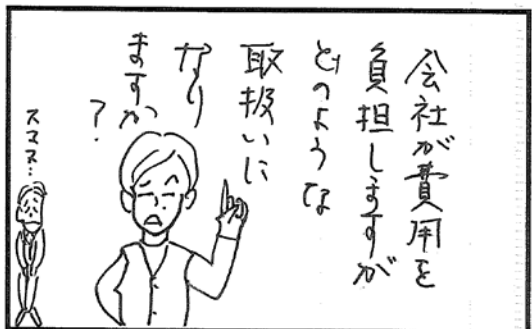 会社が費用を
負担しますが
どのような
取扱いに
なり
ますか
？
スマヌ…